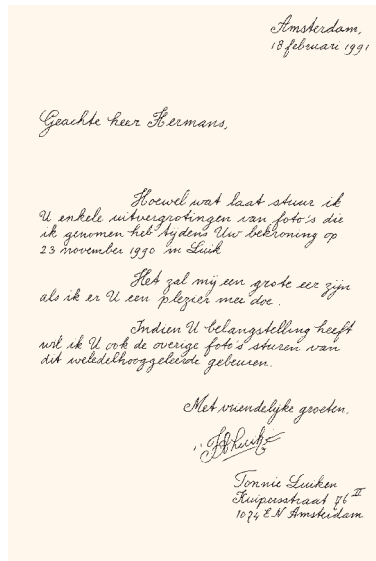 Amsterdam,
18 februari 1991
Geachte heer Hermans,
Hoewel wat laat stuur ik
U enkele uitvergrotingen van foto's die
ik genomen heb tijdens Uw bekroning op
23 november 1990 in Luik
Het zal mij een grote eer zijn
als ik er U een plezier mee doe.
Indien U belangstelling heeft
wil ik U ook de overige foto's sturen van
dit weledelhooggeleerde gebeuren.
Met vriendelijke groeten,
Tonnie Luiken
Kuipersstraat 76 II
1074 EN Amsterdam